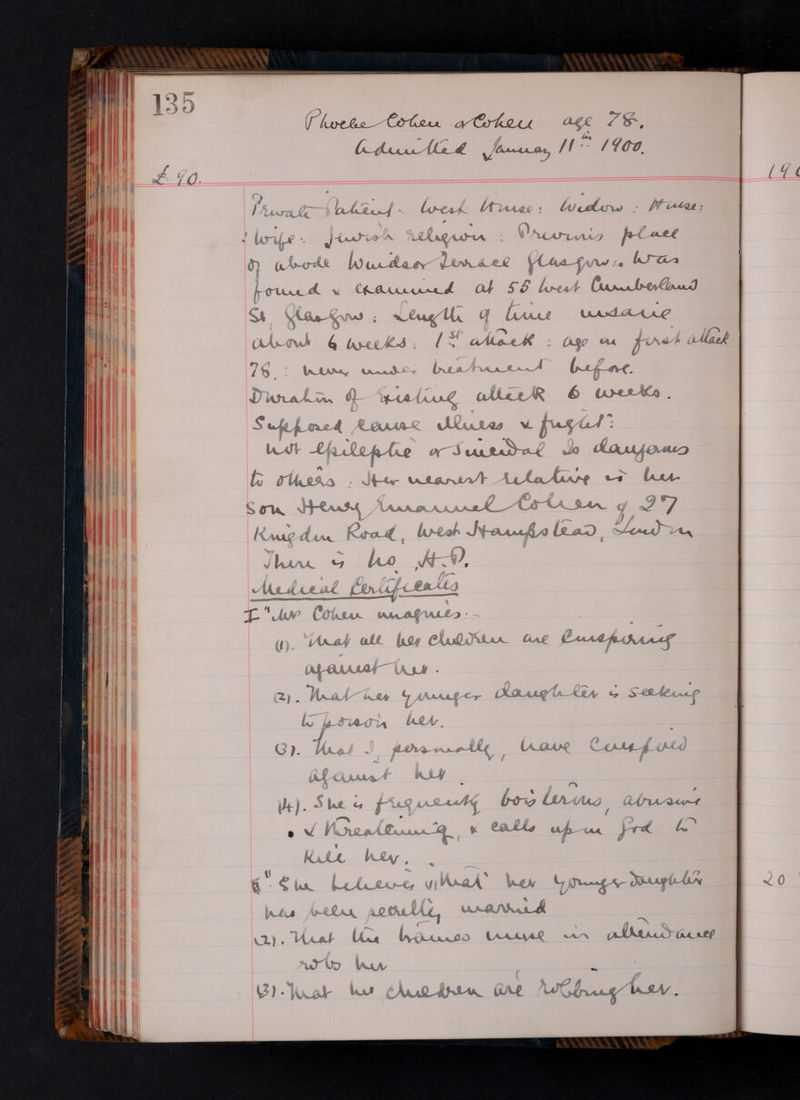 135
Phoebe Cohen or Cohen age 78.
Admitted January 11th 1900.
£90.
Private Patient. West House: Widow: House:
: wife: Jewish religion: Previous place
of abode Windsor Terrace Glasgow: Was
found & examined at 58 West Cumberland
St, Glasgow: Length of time insane
about 6 weeks: 1st attack: age on first attack
78: never under treatment before.
Duration of existing attack 6 weeks.
Supposed cause illness & fright:
not epileptic or suicidal Is dangerous
to others: Her nearest relative is her
son Henry Emanuel Cohen of 27
Road, West Hampstead, London
There is no H.P.
Medical Certificates
I "Mrs Cohen imagines:-
(1). That all her children are conspiring
against her.
(2). That her younger daughter is seeking
to poison her.
(3). That I, personally, have conspired
against her.
(4). She is frequently boisterous, abusive
& threatening, & calls upon God to
kill her.
"She believes that her younger daughter
has been secretly married
(2). That the trained nurse in attendance
robs her
(3). That her children are robbing her.
19
20